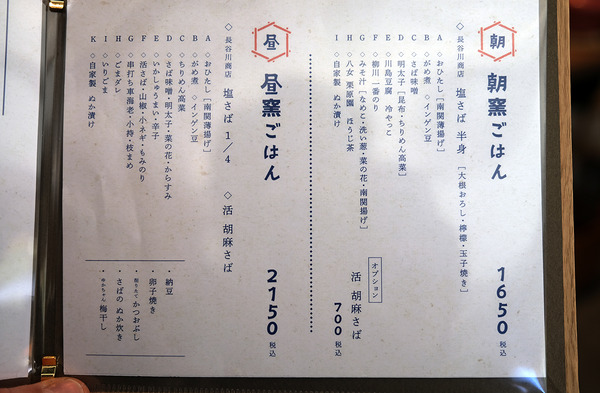 朝 朝窯ごはん 1650 税込
◇長谷川商店 塩さば 半身 [大根おろし・檸檬・玉子焼き]
A おひたし[南関薄揚げ]
B がめ煮 ◇インゲン豆
C さば味噌
D 明太子[昆布・ちりめん高菜]
E 川島豆腐 冷やっこ
F 柳川一番のり
G みそ汁[なめこ・洗い葱・菜の花・南関揚げ]
H 八女 栗原園 ほうじ茶
I 自家製 ぬか漬け
オプション
活 胡麻さば
700 税込
昼 昼窯ごはん 2150 税込
◇長谷川商店 塩さば 1/4 ◇活 胡麻さば
A おひたし[南関薄揚げ]
B がめ煮 ◇インゲン豆
C ちりめん高菜
D さば味噌・明太子・菜の花・からすみ
E いかしゅうまい・辛子
F 活さば・山椒・小ネギ・もみのり
G 串打ち車海老・小持・枝まめ
H ごまダレ
I いりごま
K 自家製 ぬか漬け
・納豆
・卵子焼き
・削りたて かつおぶし
・さばのぬか炊き
・ゆかちゃん 梅干し